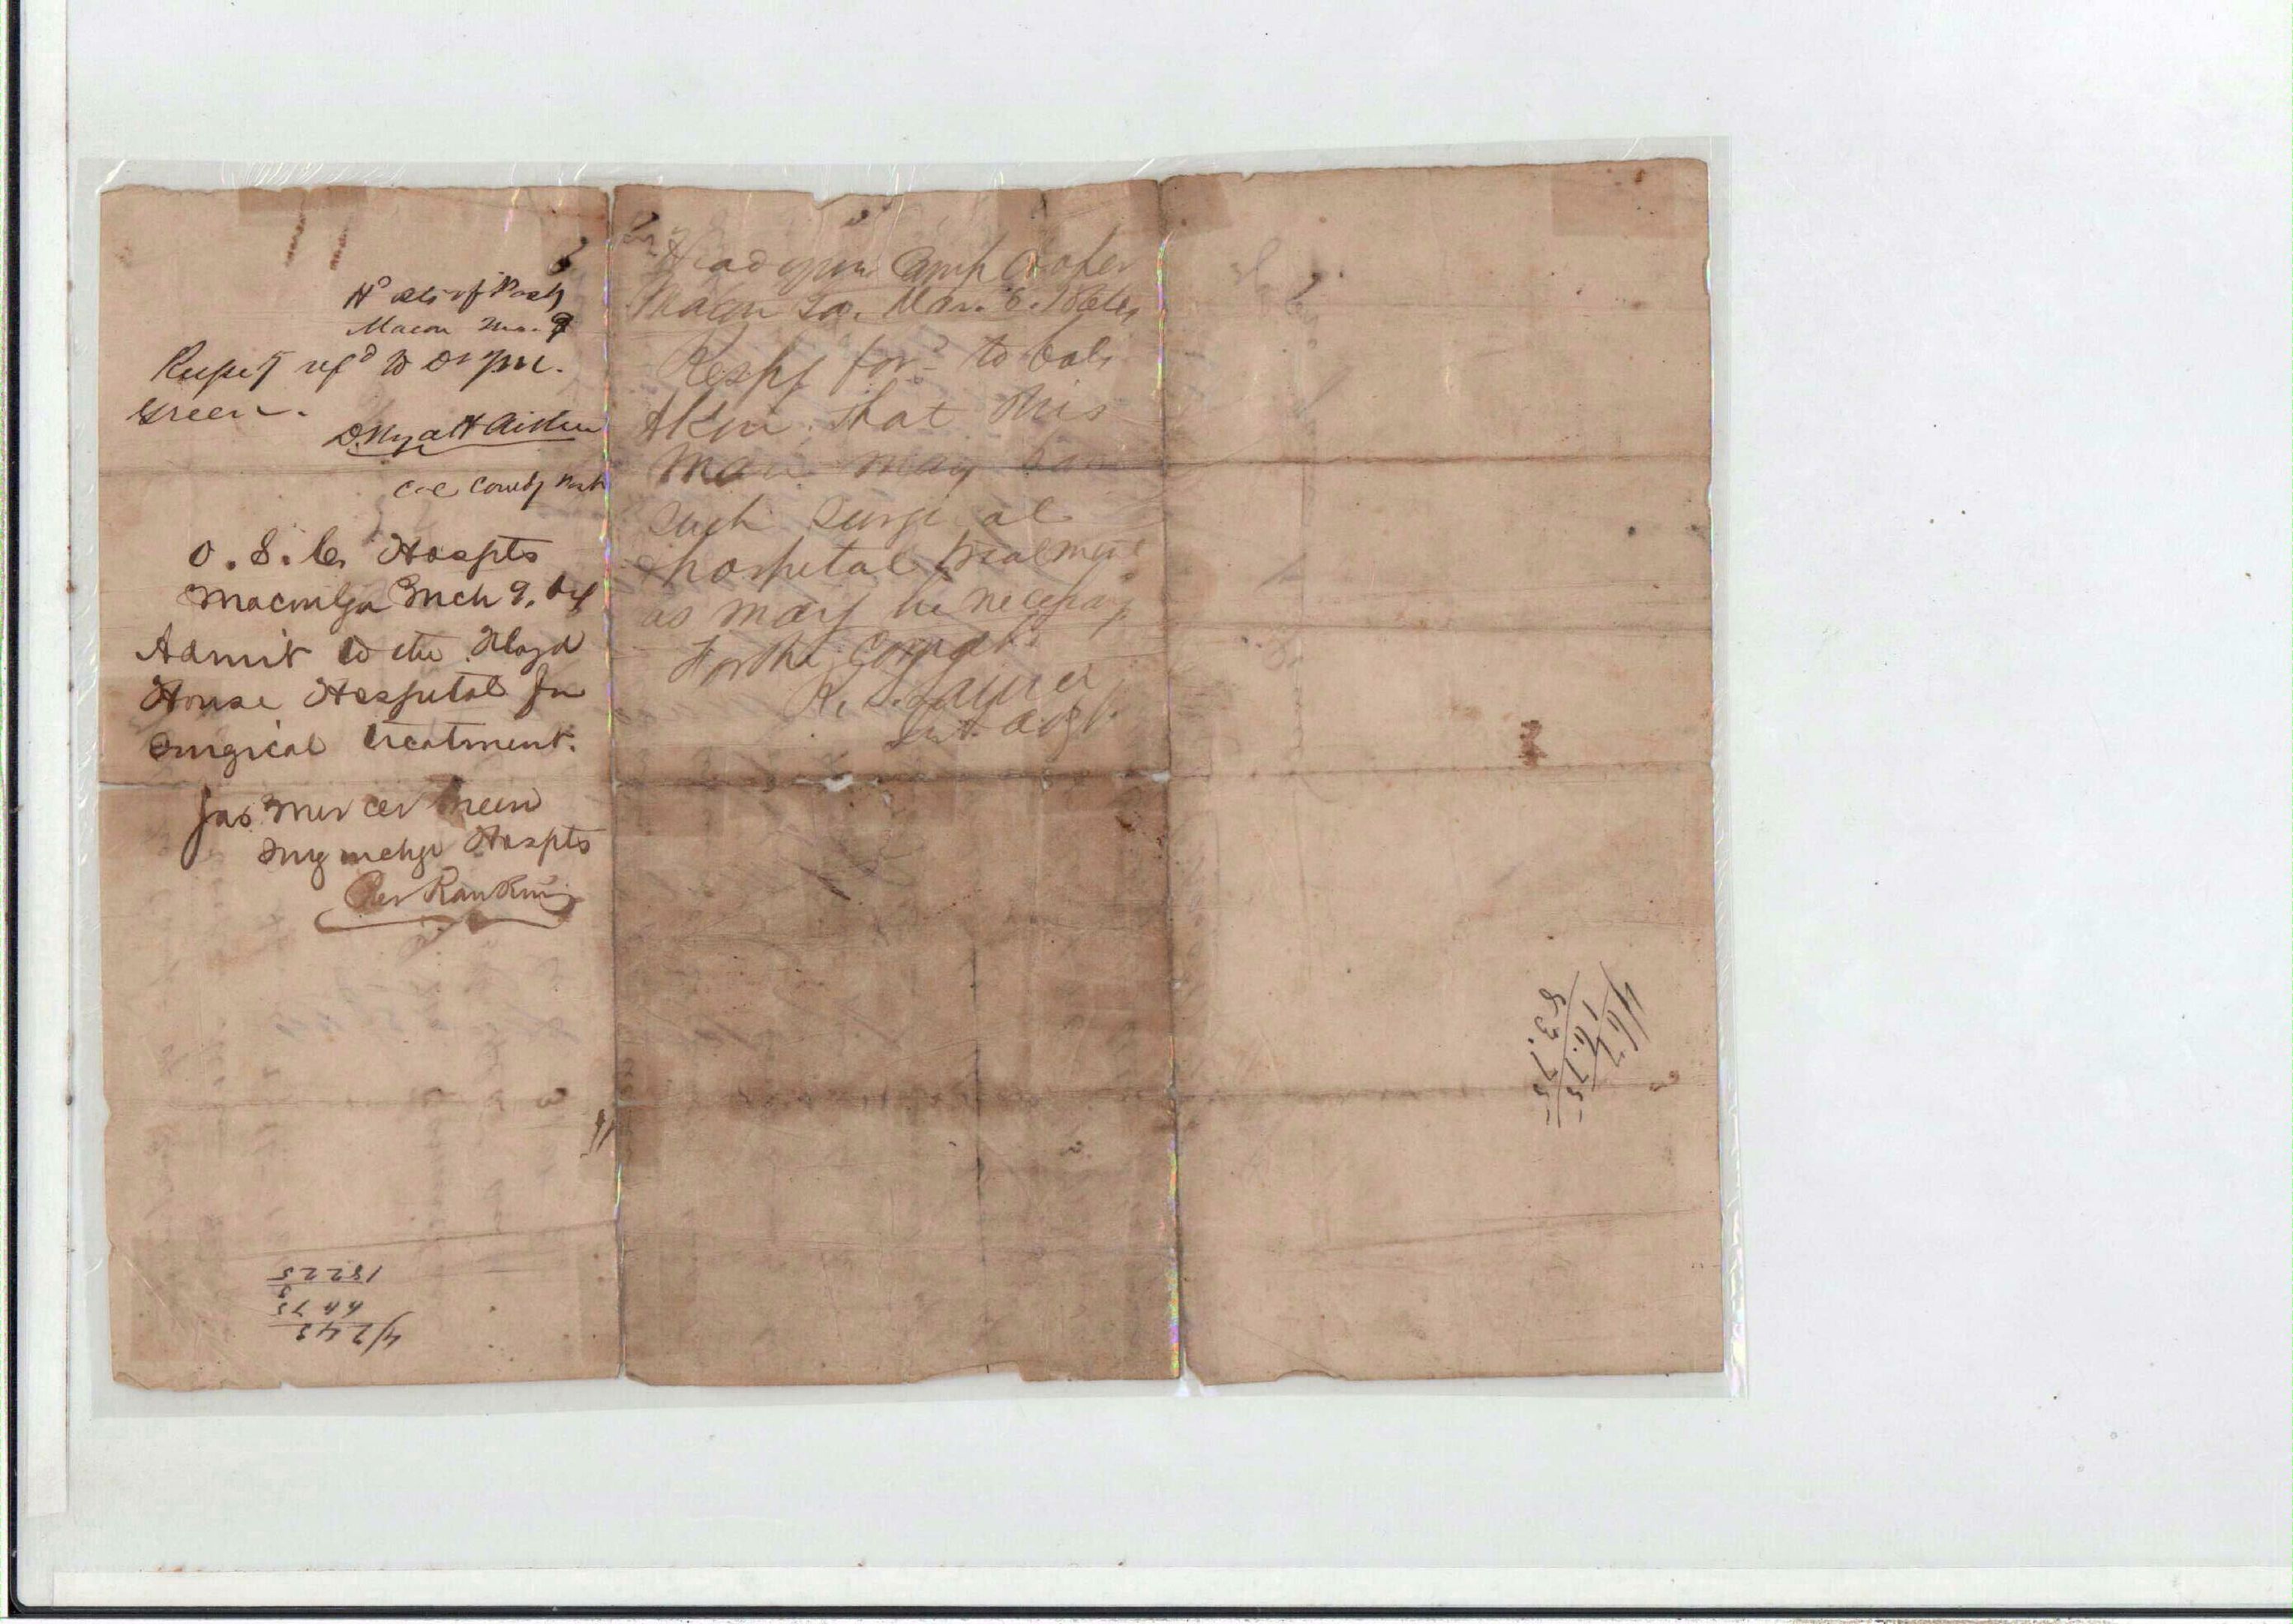 Hd Qts of Post
Macon Mar. 9
Respy refd to Surgn.
Green.
D. Wyatt Aiken
Col Comdg Post
O. S. C. Hospts
Macon Ga Mch 9, 64
Admit to the Floyd
House Hospital for
Surgical treatment.
Jas. Mercer Green
Surg in chge Hospts
Per Rankin
Camp Cooper
Macon Ga. Mar. 1864
Respy ford to Col.
Aken that this
man may have
such surgical
& hospital treatment
as may be necessary
For the Comdt
Lieut. Adjt.
4/67
16.75
83.75
4/243
60 75
3
18225